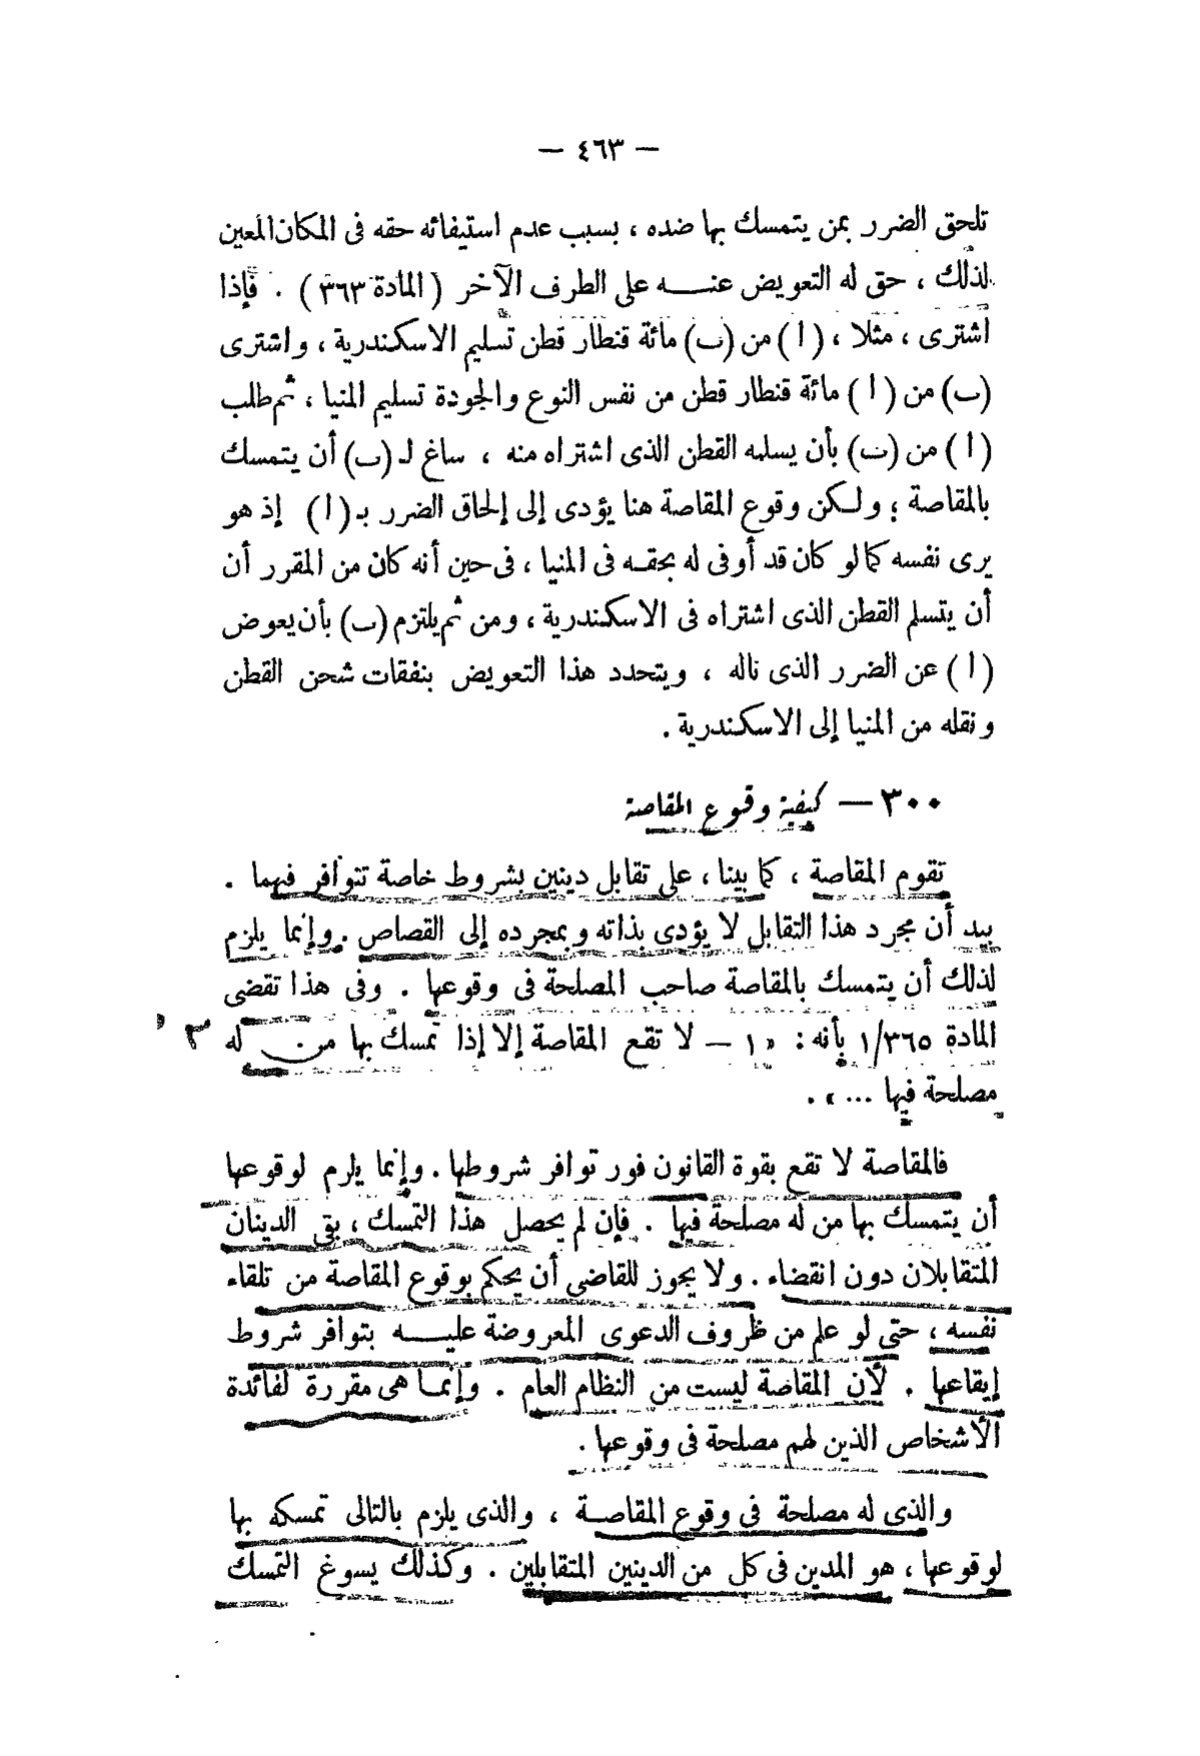 — ٤٦٣ —
تلحق الضرر بمن يتمسك بها ضده ، بسبب عدم استيفائه حقه فى المكان المعين
لذلك ، حق له التعويض عنـــه على الطرف الآخر ( المادة ٣٦٣ ) . فإذا
اشترى ، مثلا ، ( ا ) من (ب) مائة قنطار قطن تسليم الاسكندرية ، واشترى
(ب) من ( ا ) مائة قنطار قطن من نفس النوع والجودة تسليم المنيا ، ثم طلب
( ا ) من (ب) بأن يسلمه القطن الذى اشتراه منه ، ساغ لـ (ب) أن يتمسك
بالمقاصة ؛ ولكن وقوع المقاصة هنا يؤدى إلى إلحاق الضرر بـ ( ا ) إذ هو
يرى نفسه كما لو كان قد أوفى له بحقه فى المنيا ، فى حين أنه كان من المقرر أن
أن يتسلم القطن الذى اشتراه فى الاسكندرية ، ومن ثم يلتزم (ب) بأن يعوض
( ا ) عن الضرر الذى ناله ، ويتحدد هذا التعويض بنفقات شحن القطن
ونقله من المنيا إلى الاسكندرية .
٣٠٠ — كيفية وقوع المقاصة
تقوم المقاصة ، كما بينا ، على تقابل دينين بشروط خاصة تتوافر فيهما .
بيد أن مجرد هذا التقابل لا يؤدى بذاته وبمجرده إلى القصاص . وإنما يلزم
لذلك أن يتمسك بالمقاصة صاحب المصلحة فى وقوعها . وفى هذا تقضى
المادة ١/٣٦٥ بأنه : « ١ — لا تقع المقاصة إلا إذا تمسك بها من له
مصلحة فيها ... » .
فالمقاصة لا تقع بقوة القانون فور توافر شروطها . وإنما يلزم لوقوعها
أن يتمسك بها من له مصلحة فيها . فإن لم يحصل هذا التمسك ، بقى الدينان
المتقابلان دون انقضاء . ولا يجوز للقاضى أن يحكم بوقوع المقاصة من تلقاء
نفسه ، حتى لو علم من ظروف الدعوى المعروضة عليـــه بتوافر شروط
إيقاعها . لأن المقاصة ليست من النظام العام . وإنمـا هى مقررة لفائدة
الأشخاص الذين لهم مصلحة فى وقوعها .
والذى له مصلحة فى وقوع المقاصـة ، والذى يلزم بالتالى تمسكه بها
لوقوعها ، هو المدين فى كل من الدينين المتقابلين . وكذلك يسوغ التمسك